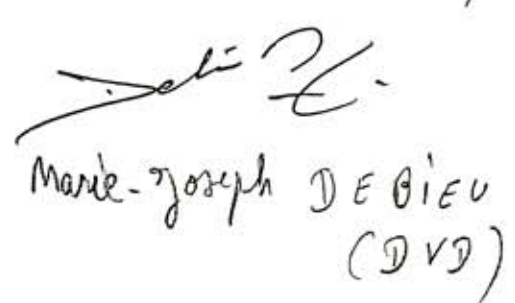 Marie-Joseph DEBIEU
(DVD)